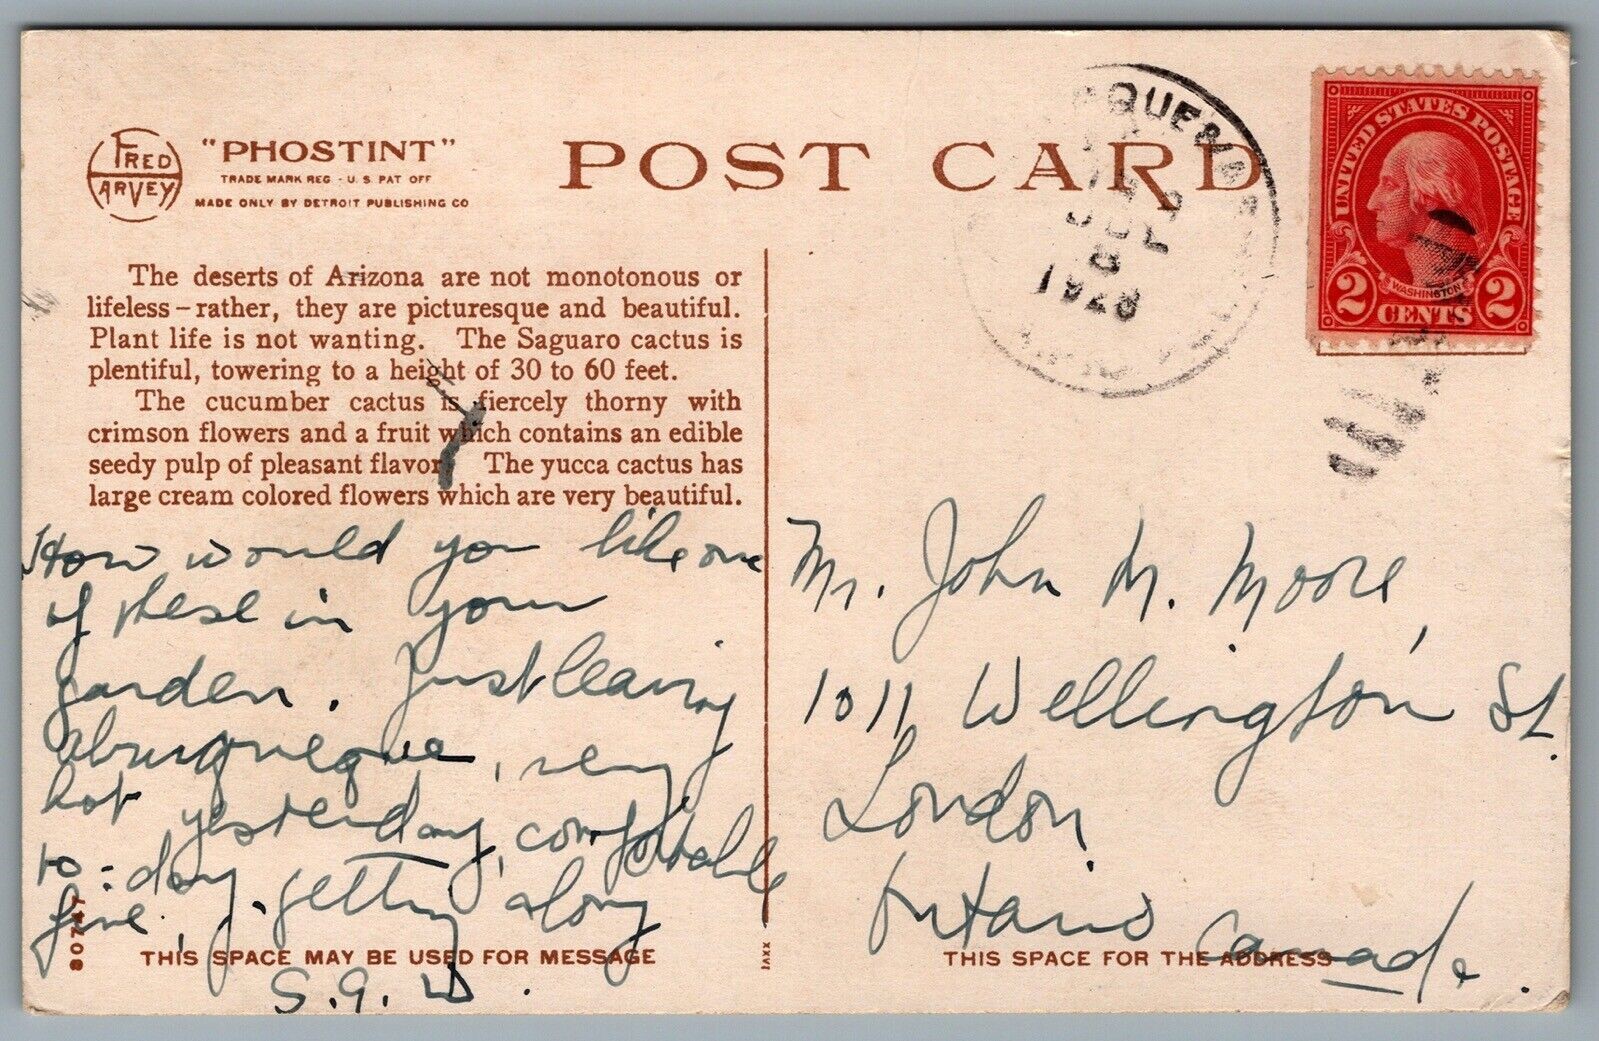 FRED
HARVEY
"PHOSTINT"
TRADE MARK REG - U.S. PAT OFF
MADE ONLY BY DETROIT PUBLISHING CO
POST CARD
QUE &
1928
UNITED STATES POSTAGE
WASHINGTON
2 CENTS 2
The deserts of Arizona are not monotonous or
lifeless – rather, they are picturesque and beautiful.
Plant life is not wanting. The Saguaro cactus is
plentiful, towering to a height of 30 to 60 feet.
The cucumber cactus is fiercely thorny with
crimson flowers and a fruit which contains an edible
seedy pulp of pleasant flavor. The yucca cactus has
large cream colored flowers which are very beautiful.
How would you like one
of these in your
garden. Just leaving
Albuquerque, very
hot yesterday, comfortable
to-day, getting along
fine.
S.G.W.
80747
THIS SPACE MAY BE USED FOR MESSAGE
Mr. John M. Moore,
1011 Wellington St.
London,
Ontario Canada.
THIS SPACE FOR THE ADDRESS